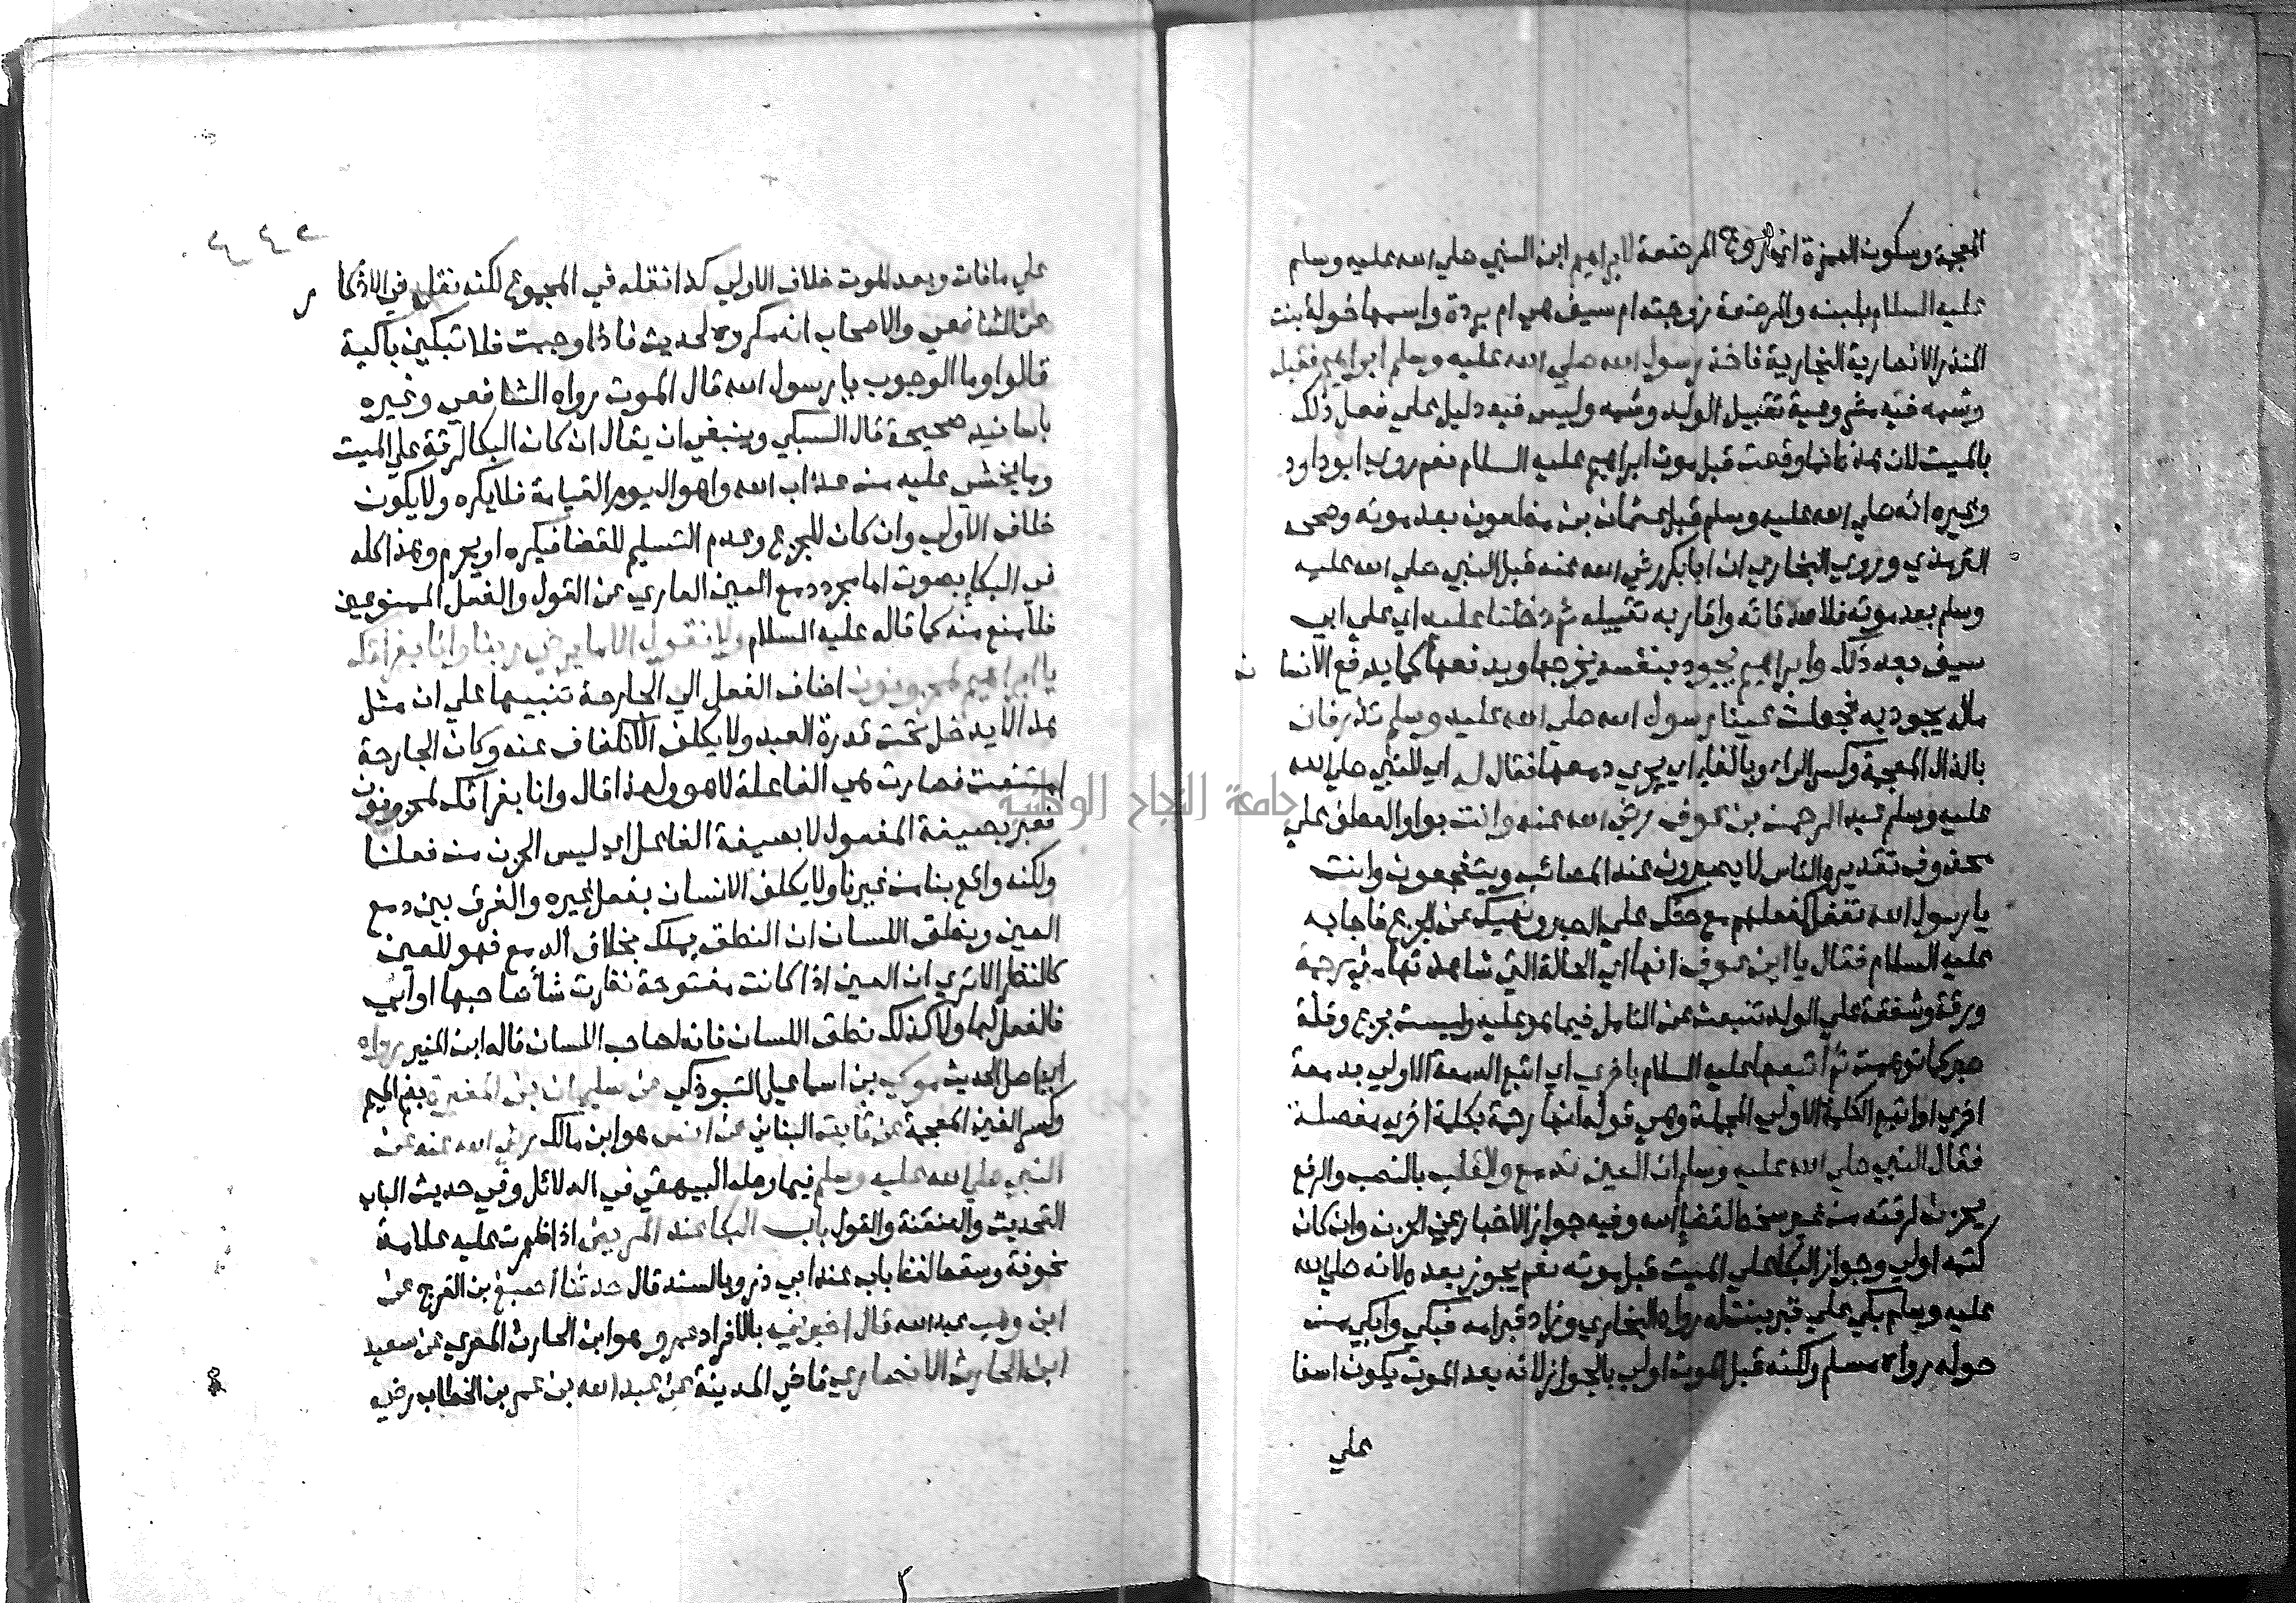 المعجمة وسكون الهمزة اي زوج المرضعة لابراهيم ابن النبي صلي الله عليه وسلم
عليه السلام بلبنه والمرضعة زوجته ام سيف هي ام بردة واسمها خولة بنت
المنذر الانصارية النجارية فاخذ رسول الله صلي الله عليه وسلم ابراهيم فقبله
وشمه فيه مشروعية تقبيل الولد وشمه وليس فيه دليل علي فعل ذلك
بالميت لان هذه انما وقعت قبل موت ابراهيم عليه السلام نعم روي ابو داود
وغيره انه صلي الله عليه وسلم قبل عثمان بن مظعون بعد موته وصححه
الترمذي وروي البخاري ان ابا بكر رضي الله عنه قبل النبي صلي الله عليه
وسلم بعد موته فلاصدقائه واقاربه تقبيله ثم دخلنا عليه اي علي ابي
سيف بعد ذلك وابراهيم يجود بنفسه يخرجها ويدفعها كما يدفع الانسان
ماله يجود به فجعلت عينا رسول الله صلي الله عليه وسلم تذرفان
بالذال المعجمة وكسر الراء وبالفاء اي يجري دمعهما فقال له اي للنبي صلي الله
عليه وسلم عبد الرحمن بن عوف رضي الله عنه وانت بواو العطف علي
محذوف تقديره الناس لا يصبرون عند المصائب ويتفجعون وانت
يا رسول الله تفعل كفعلهم مع حثك علي الصبر ونهيك عن الجزع فاجابه
عليه السلام فقال يا ابن عوف انها اي الحالة التي شاهدتها مني رحمة
ورقة وشفقة علي الولد تنبعث عن التامل فيما هو عليه وليست بجزع وقلة
صبر كما توهمت ثم اتبعها عليه السلام باخري اي اتبع الدمعة الاولي بدمعة
اخري او اتبع الكلمة الاولي المجملة وهي قوله انها رحمة بكلمة اخري مفصلة
فقال النبي صلي الله عليه وسلم ان العين تدمع والقلب بالنصب والرفع
يحزن لرقته من غير سخط لقضاء الله وفيه جواز الاخبار عن الحزن وان كان
كتمه اولي وجواز البكاء علي الميت قبل موته نعم يجوز بعده لانه صلي الله
عليه وسلم بكي علي قبر بنت له رواه البخاري وزار قبر امه فبكي وابكي من
حوله رواه مسلم ولكنه قبل الموت اولي بالجواز لانه بعد الموت يكون اسفا
علي
٢٤٤
علي ما فات وبعد الموت خلاف الاولي كذا نقله في المجموع لكنه نقل في الاذكار
عن الشافعي والاصحاب انه مكروه لحديث فاذا وجبت فلا تبكين باكية
قالوا وما الوجوب يا رسول الله قال الموت رواه الشافعي وغيره
باسانيد صحيحة قال السبكي وينبغي ان يقال ان كان البكا لرقة علي الميت
وما يخشي عليه من عذاب الله واهوال يوم القيامة فلا يكره ولا يكون
خلاف الاولي وان كان للجزع وعدم التسليم للقضا فيكره او يحرم وهذا كله
في البكاء بصوت اما مجرد دمع العين العاري عن القول والفعل الممنوعين
فلا منع منه كما قال عليه السلام ولا نقول الا ما يرضي ربنا وانا بفراقك
يا ابراهيم لمحزونون اضاف الفعل الي الجارحة تنبيها علي ان مثل
هذا لا يدخل تحت قدرة العبد ولا يكلف الانكفاف عنه وكان الجارحة
امتنعت فصارت هي الفاعلة لا هو ولهذا قال وانا بفراقك لمحزونون
فعبر بصيغة المفعول لا بصيغة الفاعل اي ليس الحزن من فعلنا
ولكنه واقع بنا من غيرنا ولا يكلف الانسان بفعل غيره والفرق بين دمع
العين ونطق اللسان ان النطق يملك بخلاف الدمع فهو للعين
كالنظر الا تري ان العين اذا كانت مفتوحة نظرت شاء صاحبها او ابي
فالفعل لها ولا كذلك نطق اللسان فانه لصاحب اللسان قاله ابن المنير رواه
اي اصل الحديث موسي بن اسماعيل التبوذكي عن سليمان بن المغيرة بضم الميم
وكسر الغين المعجمة عن ثابت البناني عن انس هو ابن مالك رضي الله عنه عن
النبي صلي الله عليه وسلم فيما وصله البيهقي في الدلائل وفي حديث الباب
التحديث والعنعنة والقول باب البكا عند المريض اذا ظهرت عليه علامة
مخوفة وسقط لفظ باب عند ابي ذر وبالسند قال حدثنا اصبغ بن الفرج عن
ابن وهب عبد الله قال اخبرني بالافراد عمرو هو ابن الحارث المصري عن سعيد
ابن الحارث الانصاري قاضي المدينة عن عبد الله بن عمر بن الخطاب رضي
جامعة النجاح الوطنية